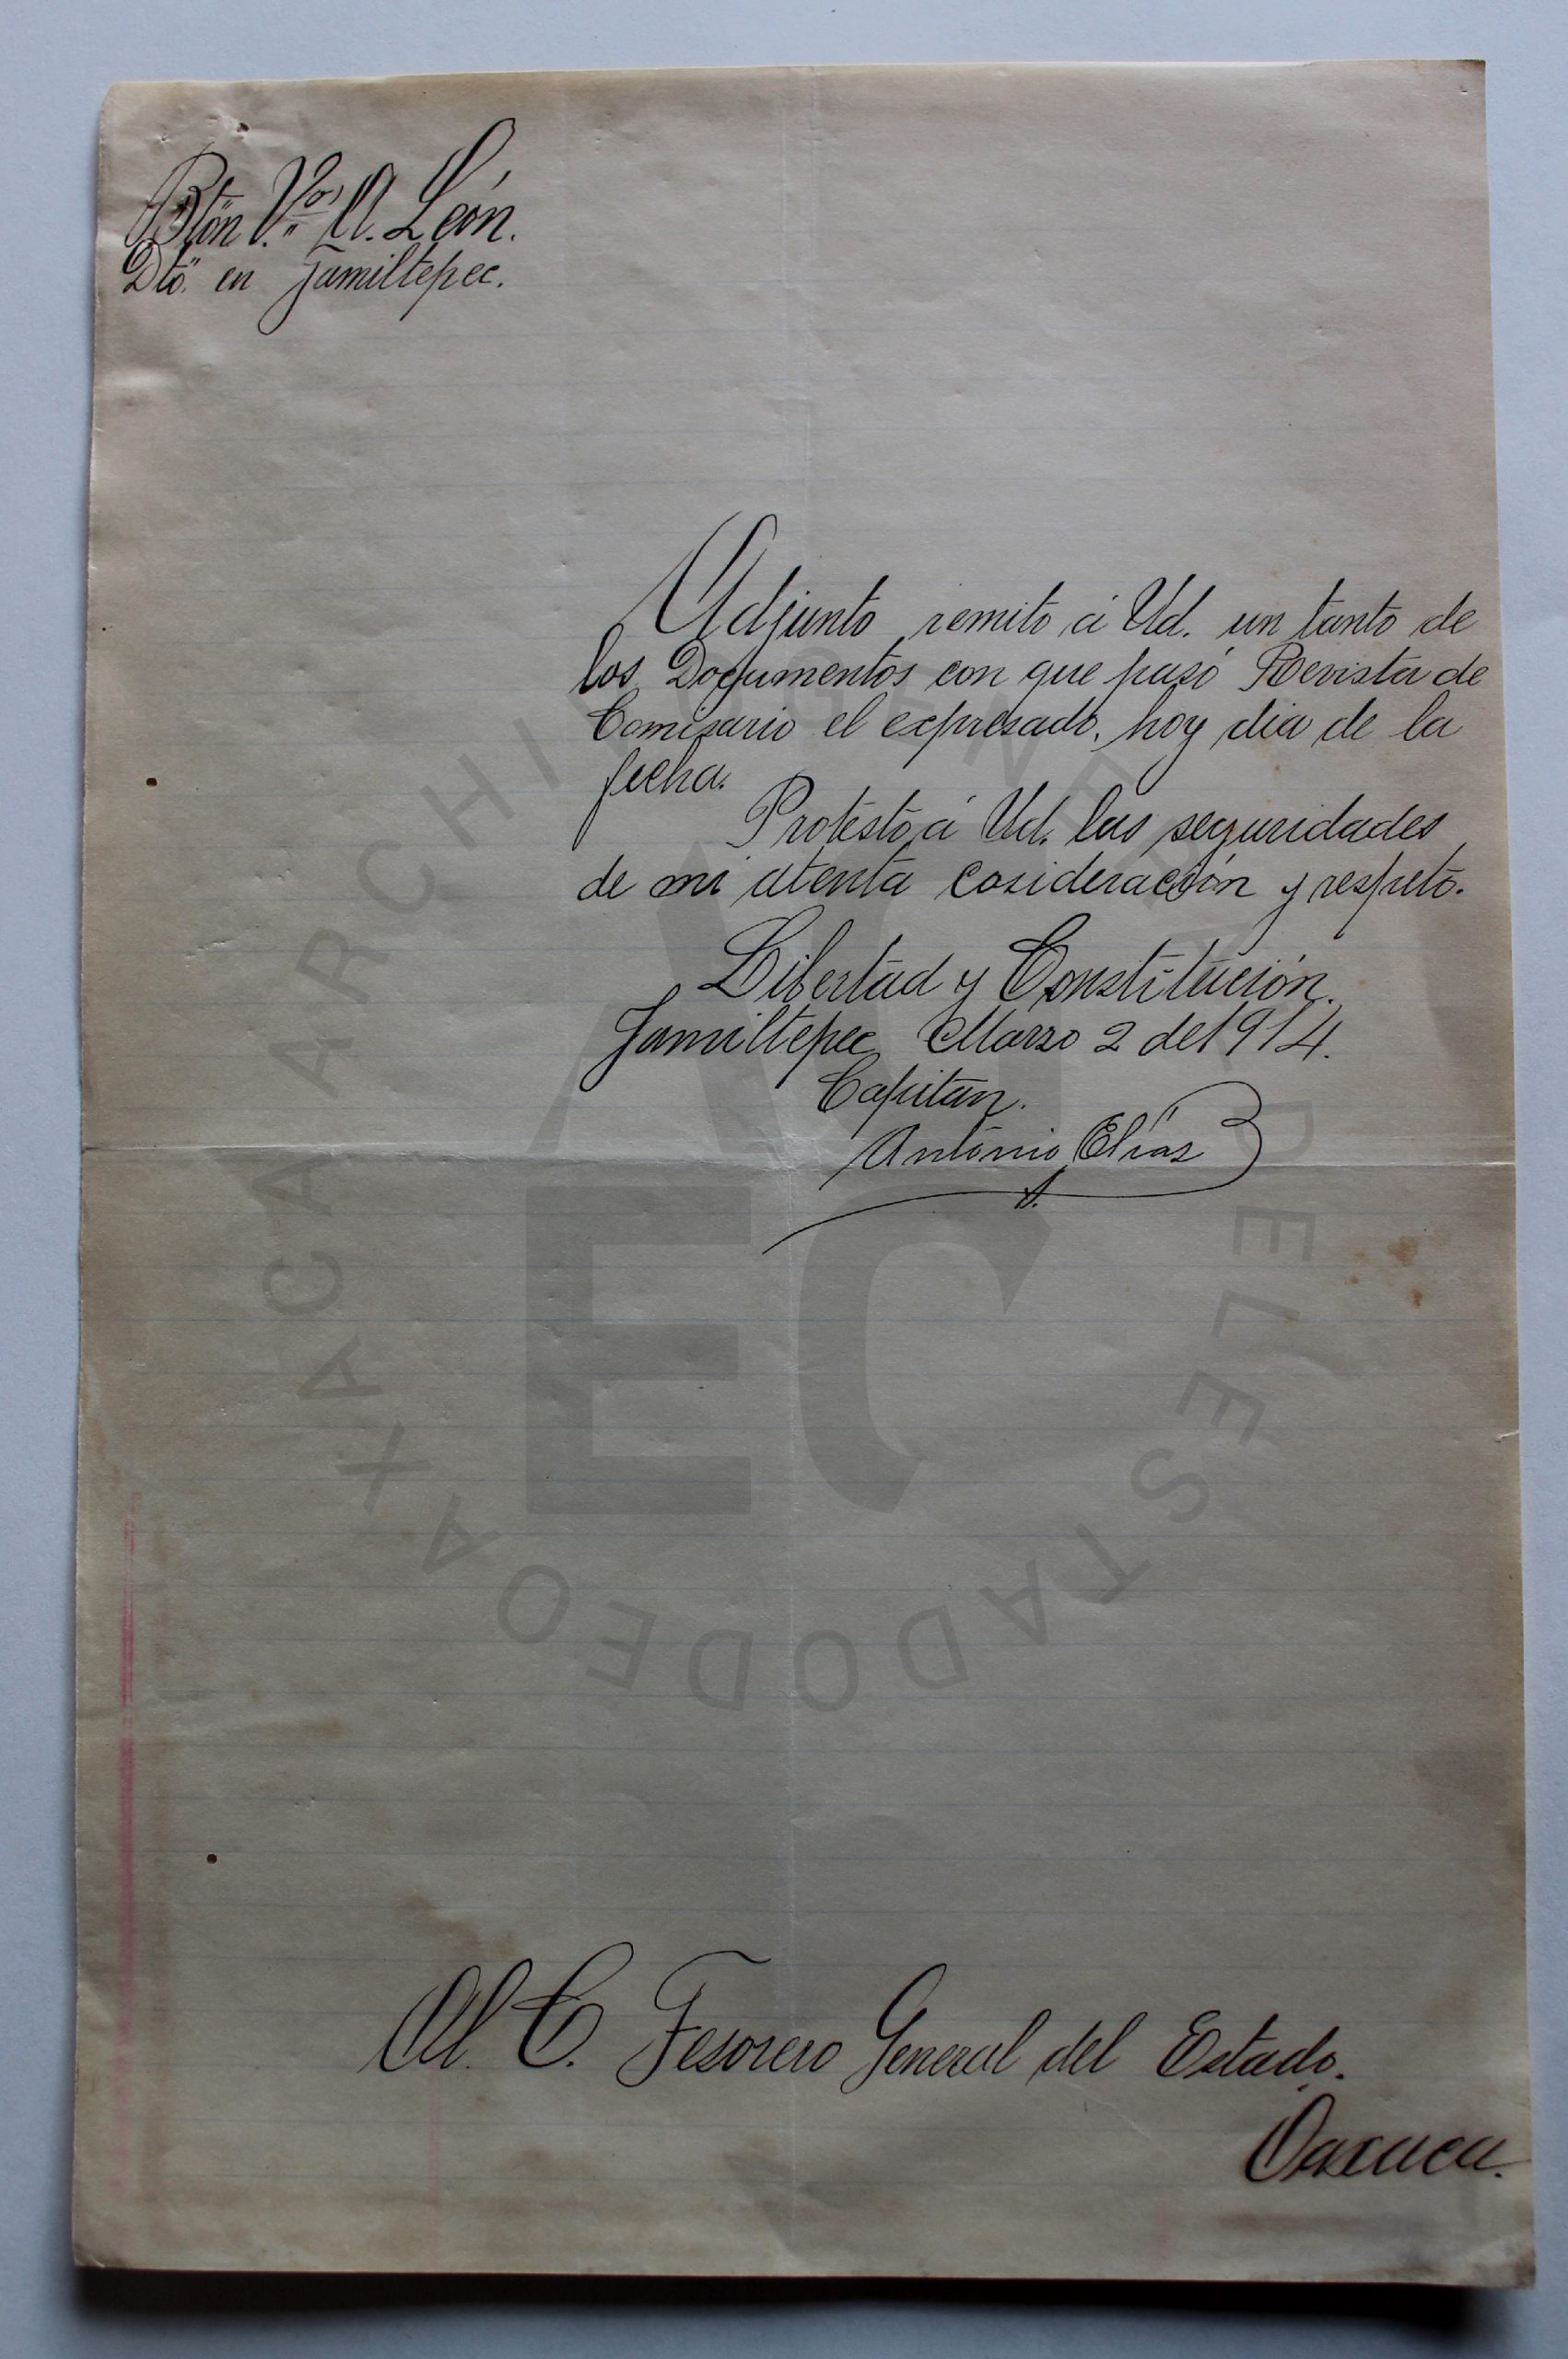 Btón. V.os A. León.
Dto. en Jamiltepec.
Adjunto remito á Ud. un tanto de
los Documentos con que pasó Revista de
Comisario el expresado, hoy dia de la
fecha.
Protesto á Ud. las seguridades
de mi atenta cosideración y respeto.
Libertad y Constitución.
Jamiltepec Marzo 2 de 1914.
Capitan.
Antonio Elías
A.
Al. C. Tesorero General del Estado.
Oaxaca.
ARCHIVO GENERAL DEL ESTADO DE OAXACA
A
EC